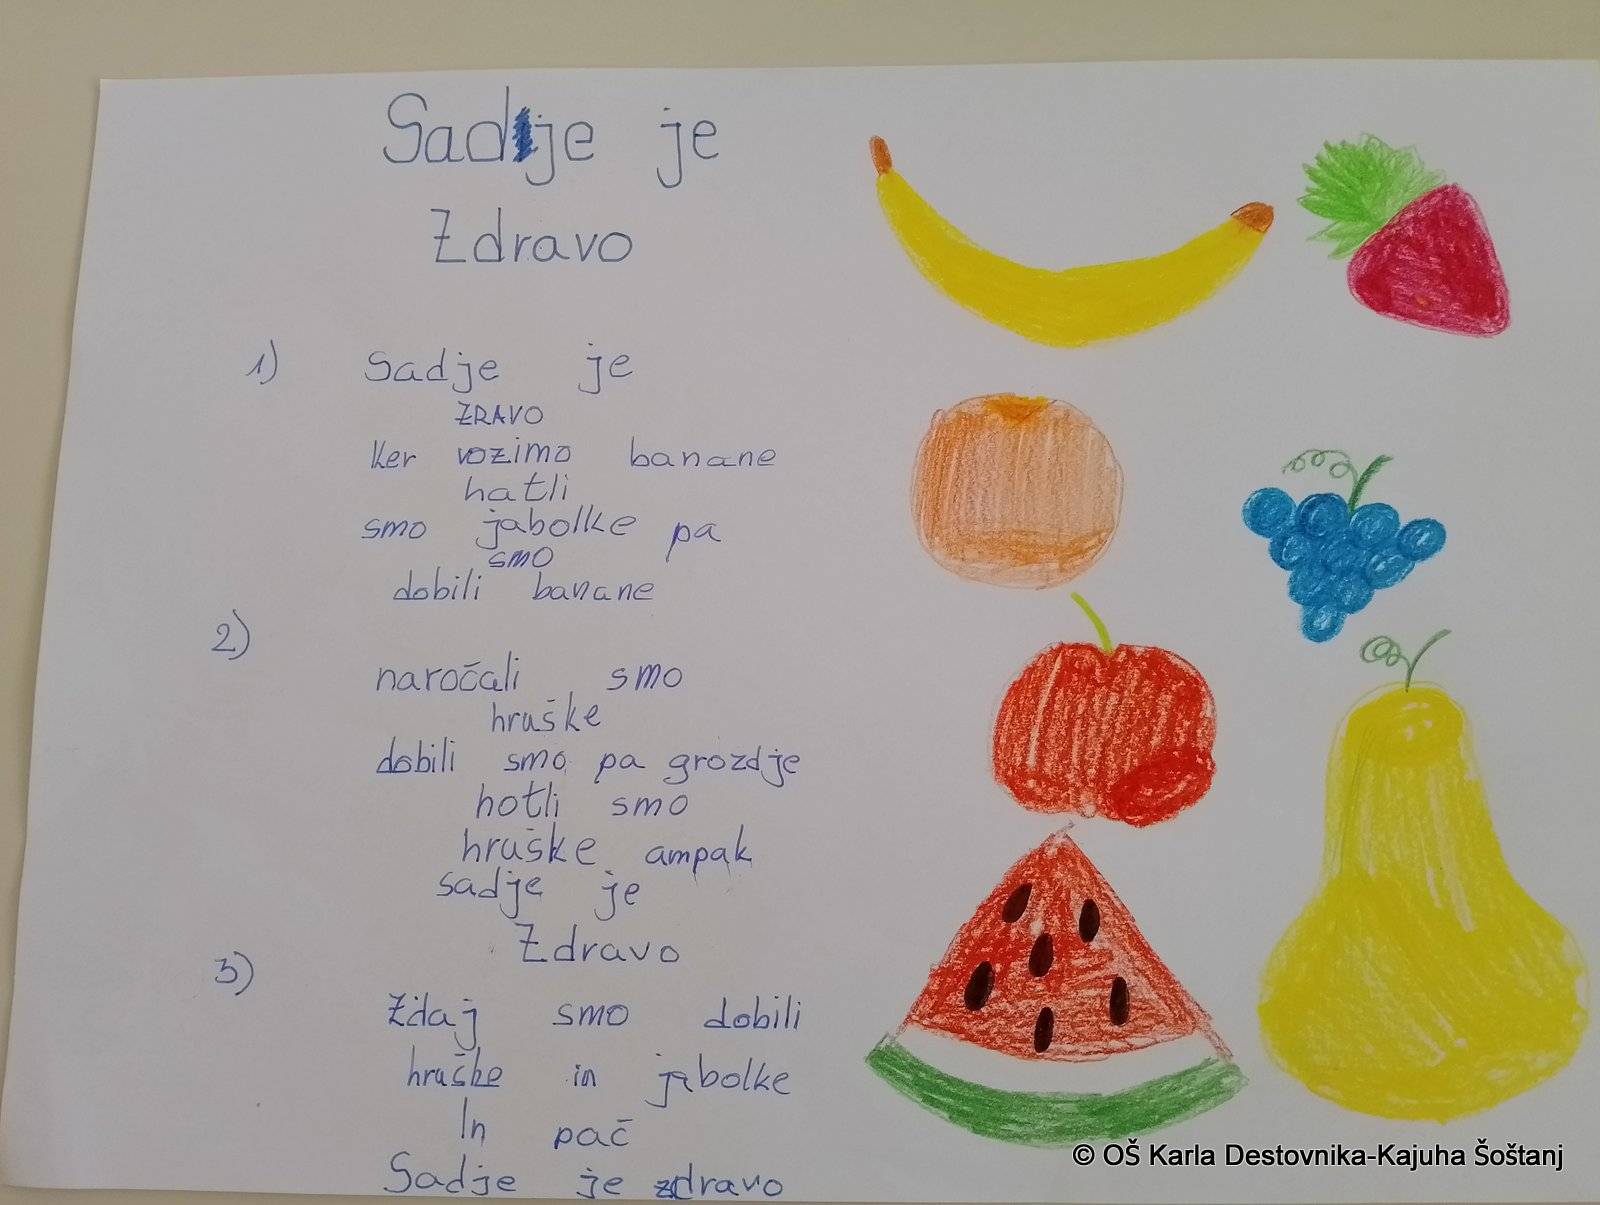 Sadje je
Zdravo
1) Sadje je
ZRAVO
Ker vozimo banane
hatli
smo jabolke pa
smo
dobili banane
2)
naročali smo
hruške
dobili smo pa grozdje
hotli smo
hruške ampak
sadje je
Zdravo
3)
Zdaj smo dobili
hruške in jabolke
In pač
Sadje je zdravo
© OŠ Karla Destovnika-Kajuha Šoštanj